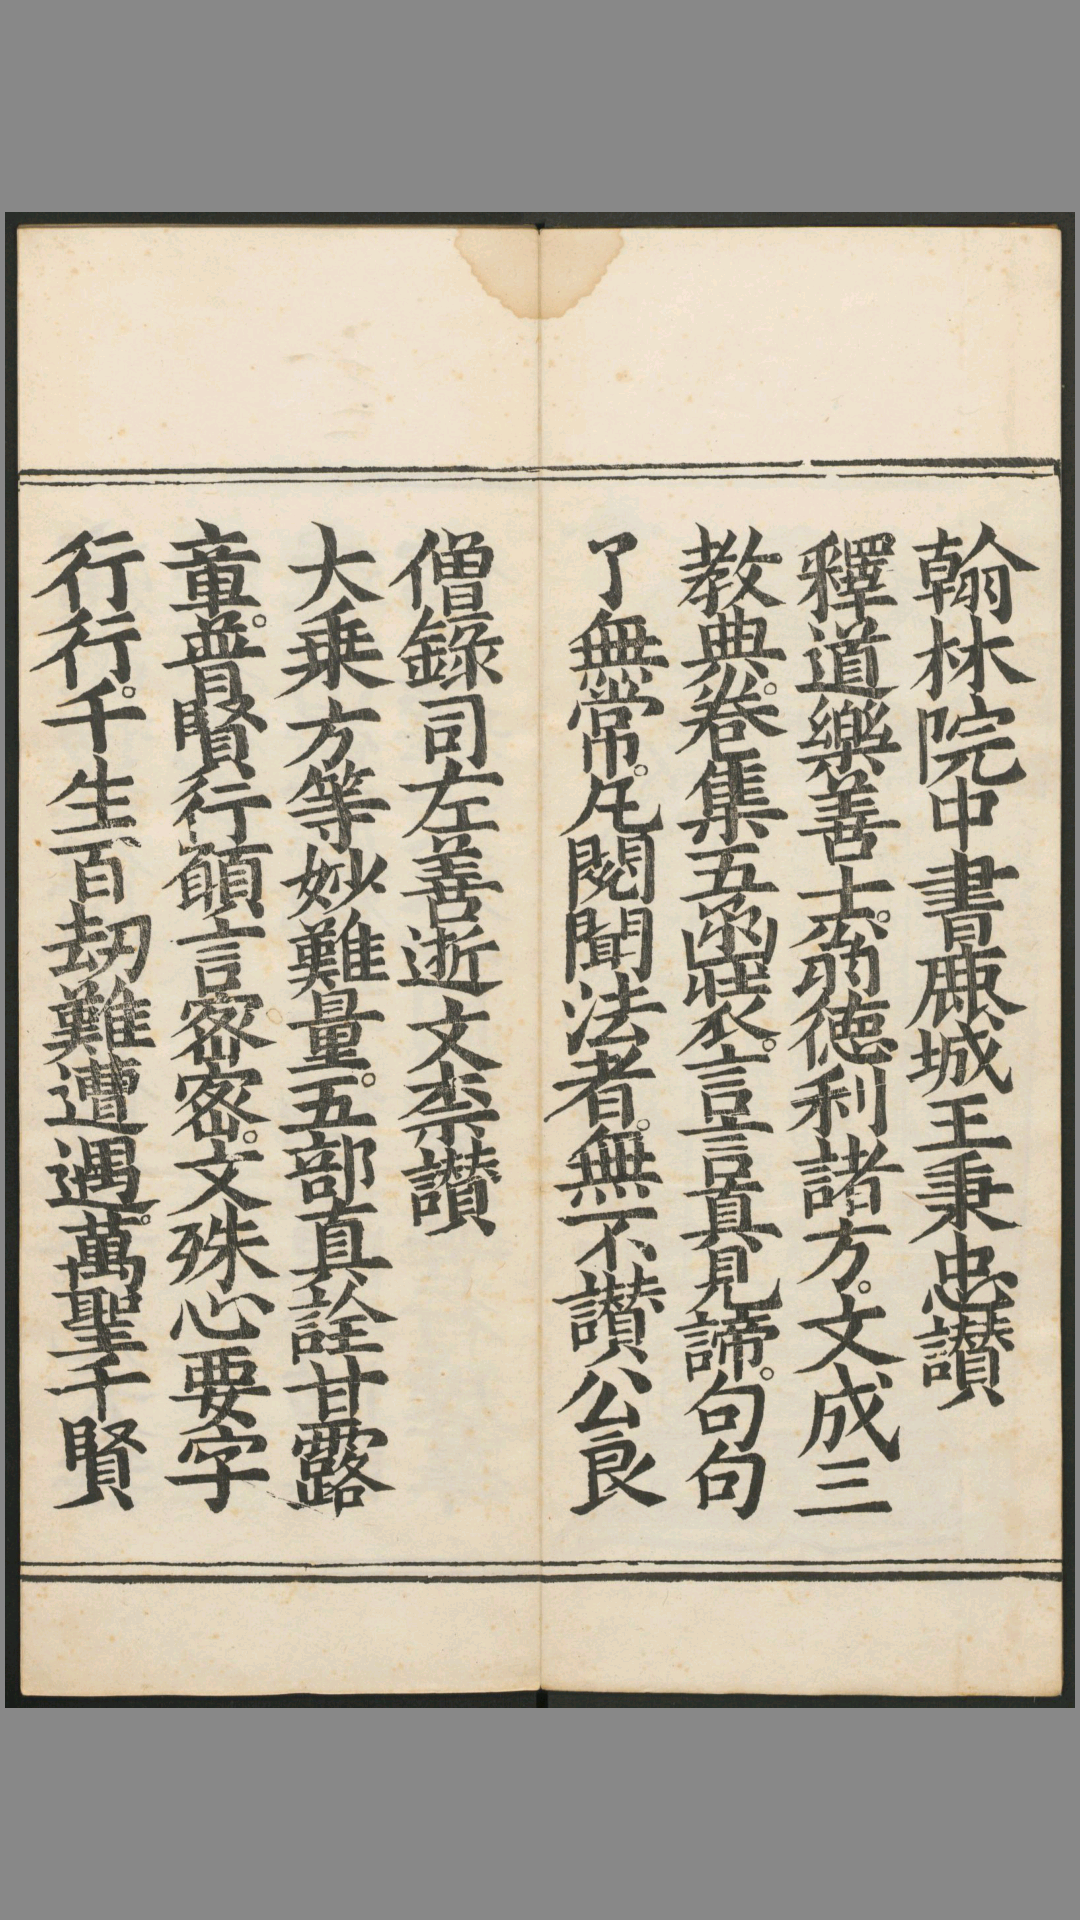 翰林院中書鹿城王秉忠讃
釋道樂善士。為德利諸方。文成三
教典。卷集五函裝。言言真見諦。句句
了無常。凡閱聞法者。無不讃公良
僧錄司左善逝文柰讃
大乗方等妙難量。五部真詮甘露
章。普賢行願言密密。文殊心要字
行行。千生百劫難遭遇。萬聖千賢